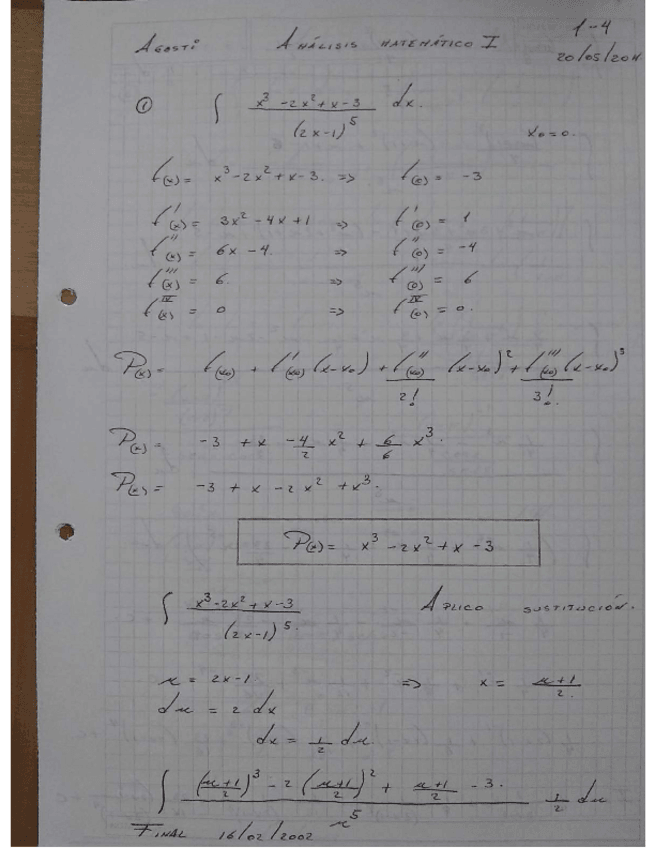 1-4
AGOSTI ANÁLISIS MATEMÁTICO I
20/05/201
① ∫ (x³ - 2x² + x - 3)/(2x-1)⁵ dx.
x₀ = 0.
f(x) = x³ - 2x² + x - 3. => f(0) = -3
f'(x) = 3x² - 4x + 1 => f'(0) = 1
f''(x) = 6x - 4. => f''(0) = -4
f'''(x) = 6. => f'''(0) = 6
f^IV(x) = 0 => f^IV(0) = 0.
P(x) = f(x₀) + f'(x₀) (x-x₀) + f''(x₀)/2! (x-x₀)² + f'''(x₀)/3! (x-x₀)³
P(x) = -3 + x -4/2 x² + 6/6 x³.
P(x) = -3 + x - 2x² + x³.
P(x) = x³ - 2x² + x - 3
∫ (x³ - 2x² + x - 3)/(2x-1)⁵. APLICO SUSTITUCIÓN.
u = 2x-1. => x = (u+1)/2.
du = 2 dx
dx = 1/2 du.
∫ (((u+1)/2)³ - 2 ((u+1)/2)² + (u+1)/2 - 3.)/u⁵ 1/2 du
FINAL 16/02/2002